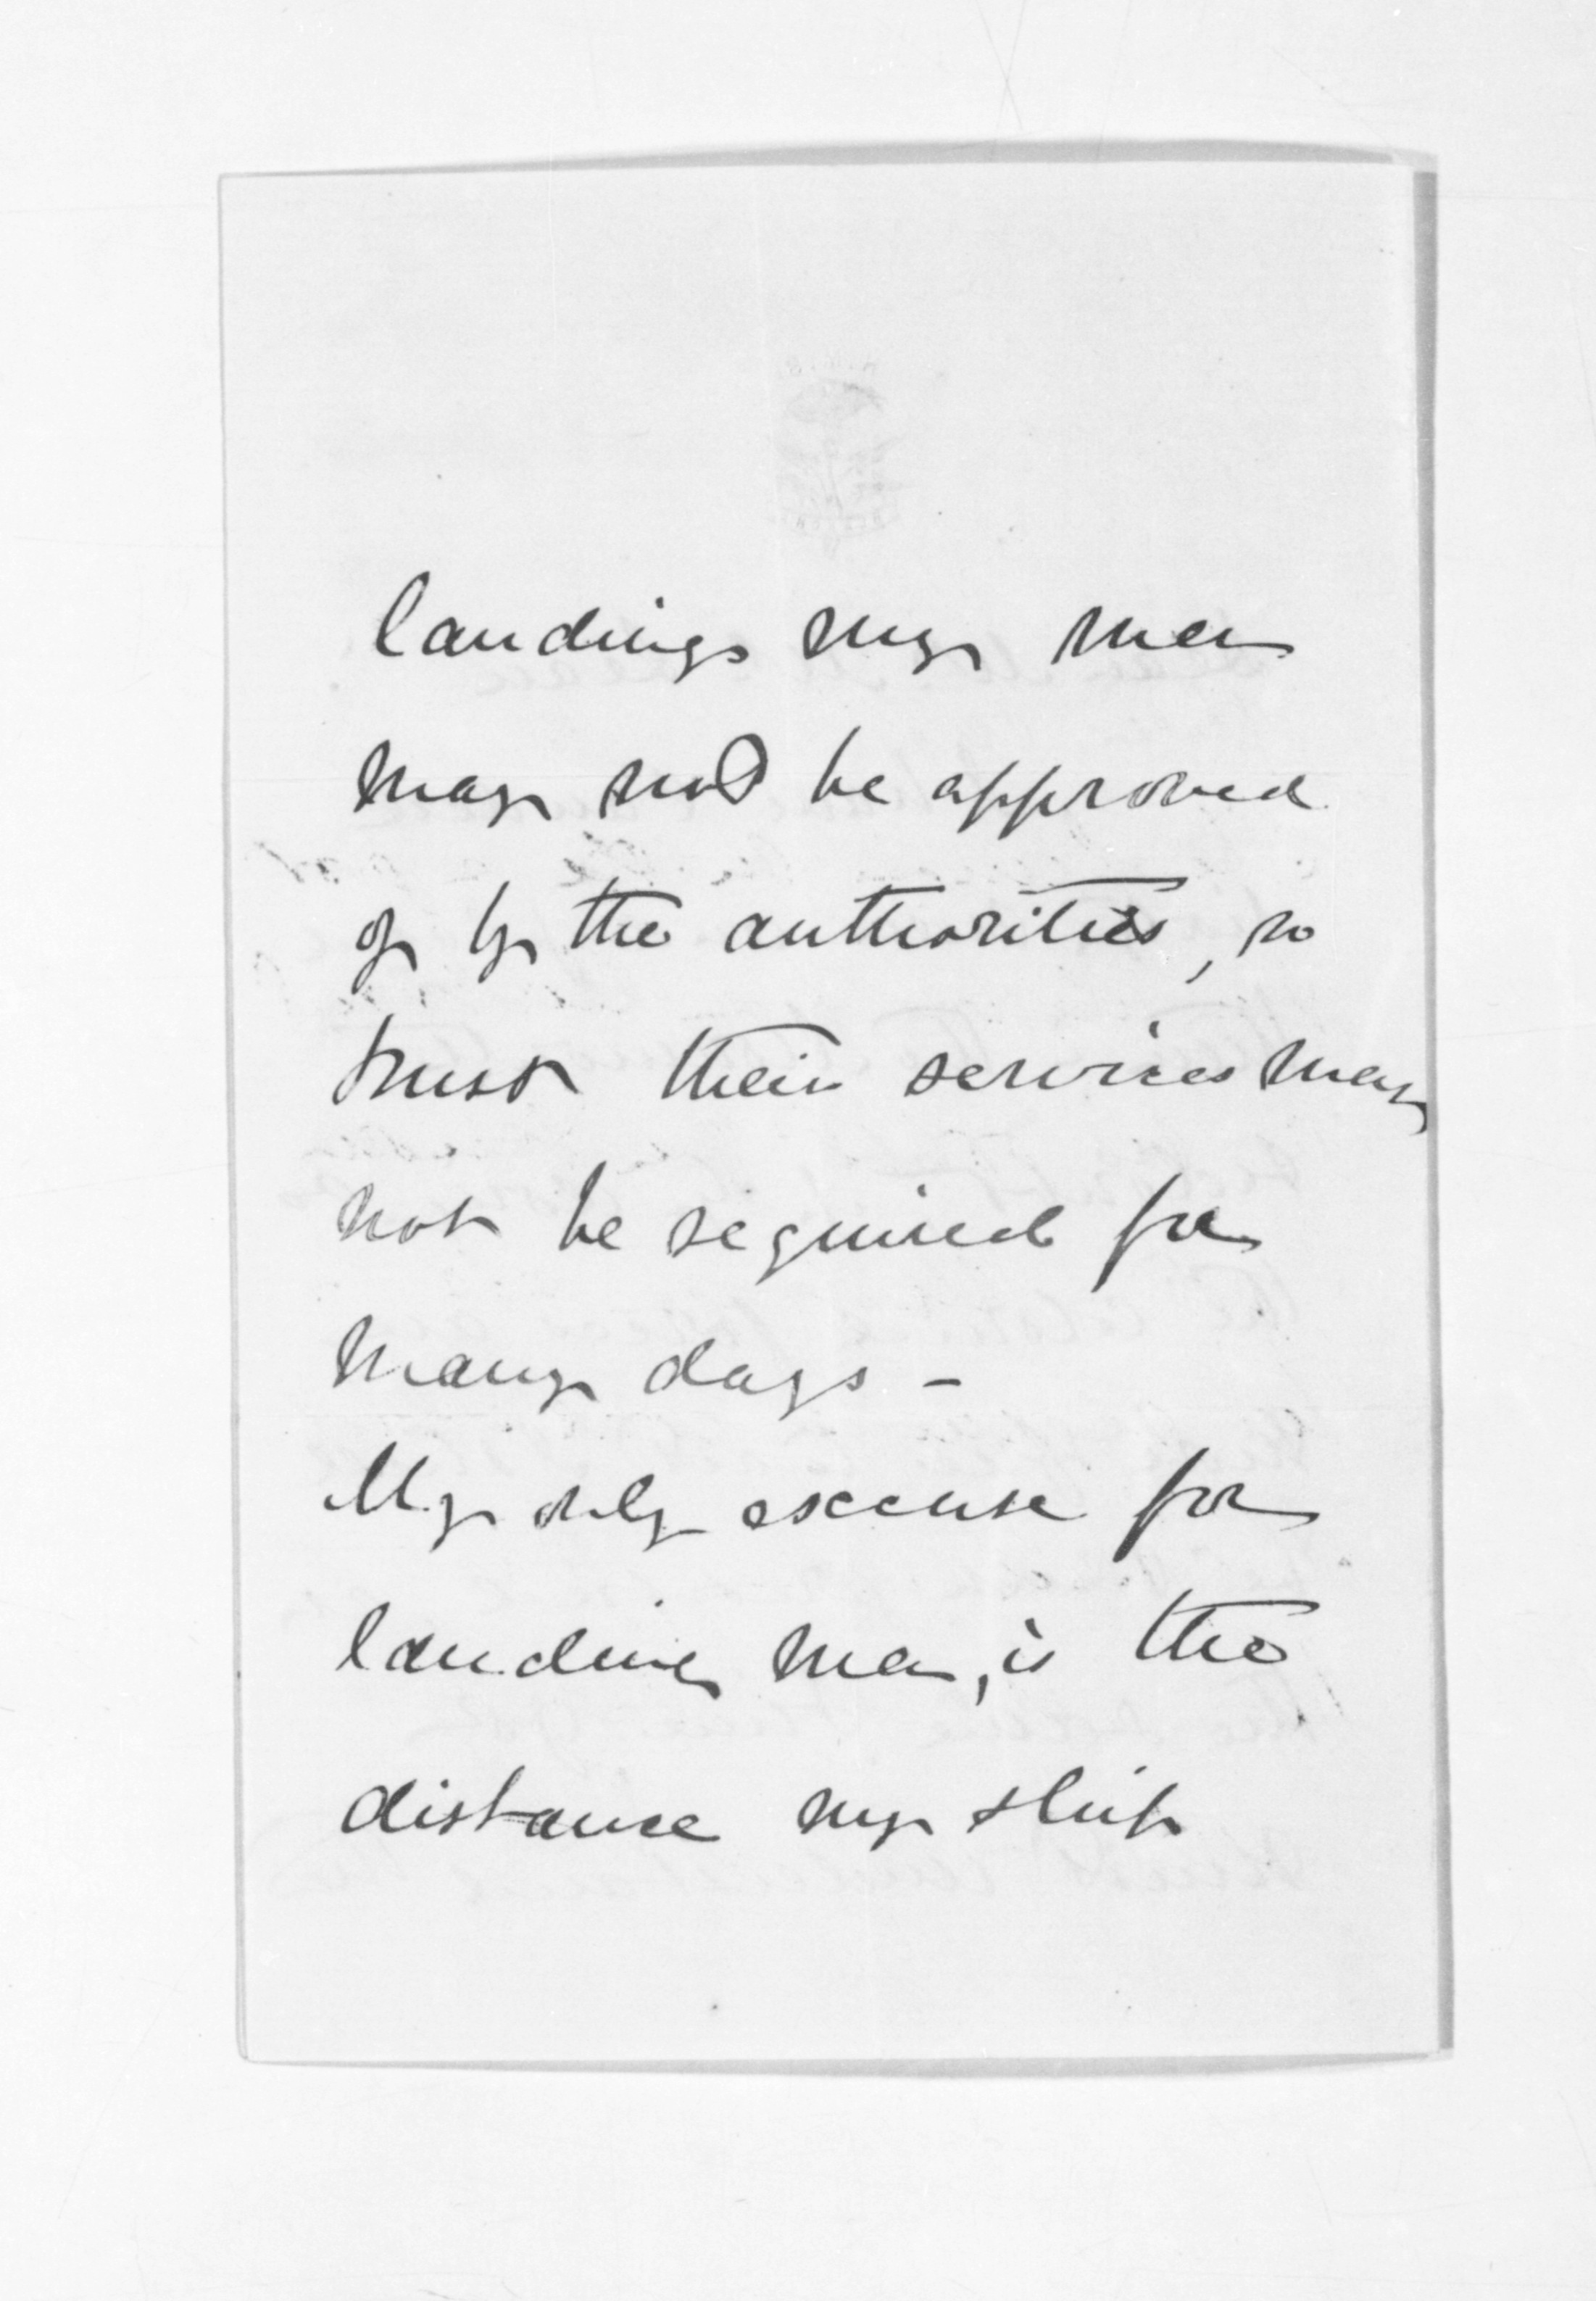 landings my men
may not be approved
of by the authorities, so
trust their services may
not be required for
many days -
My only excuse for
landing men, is the
distance my ship